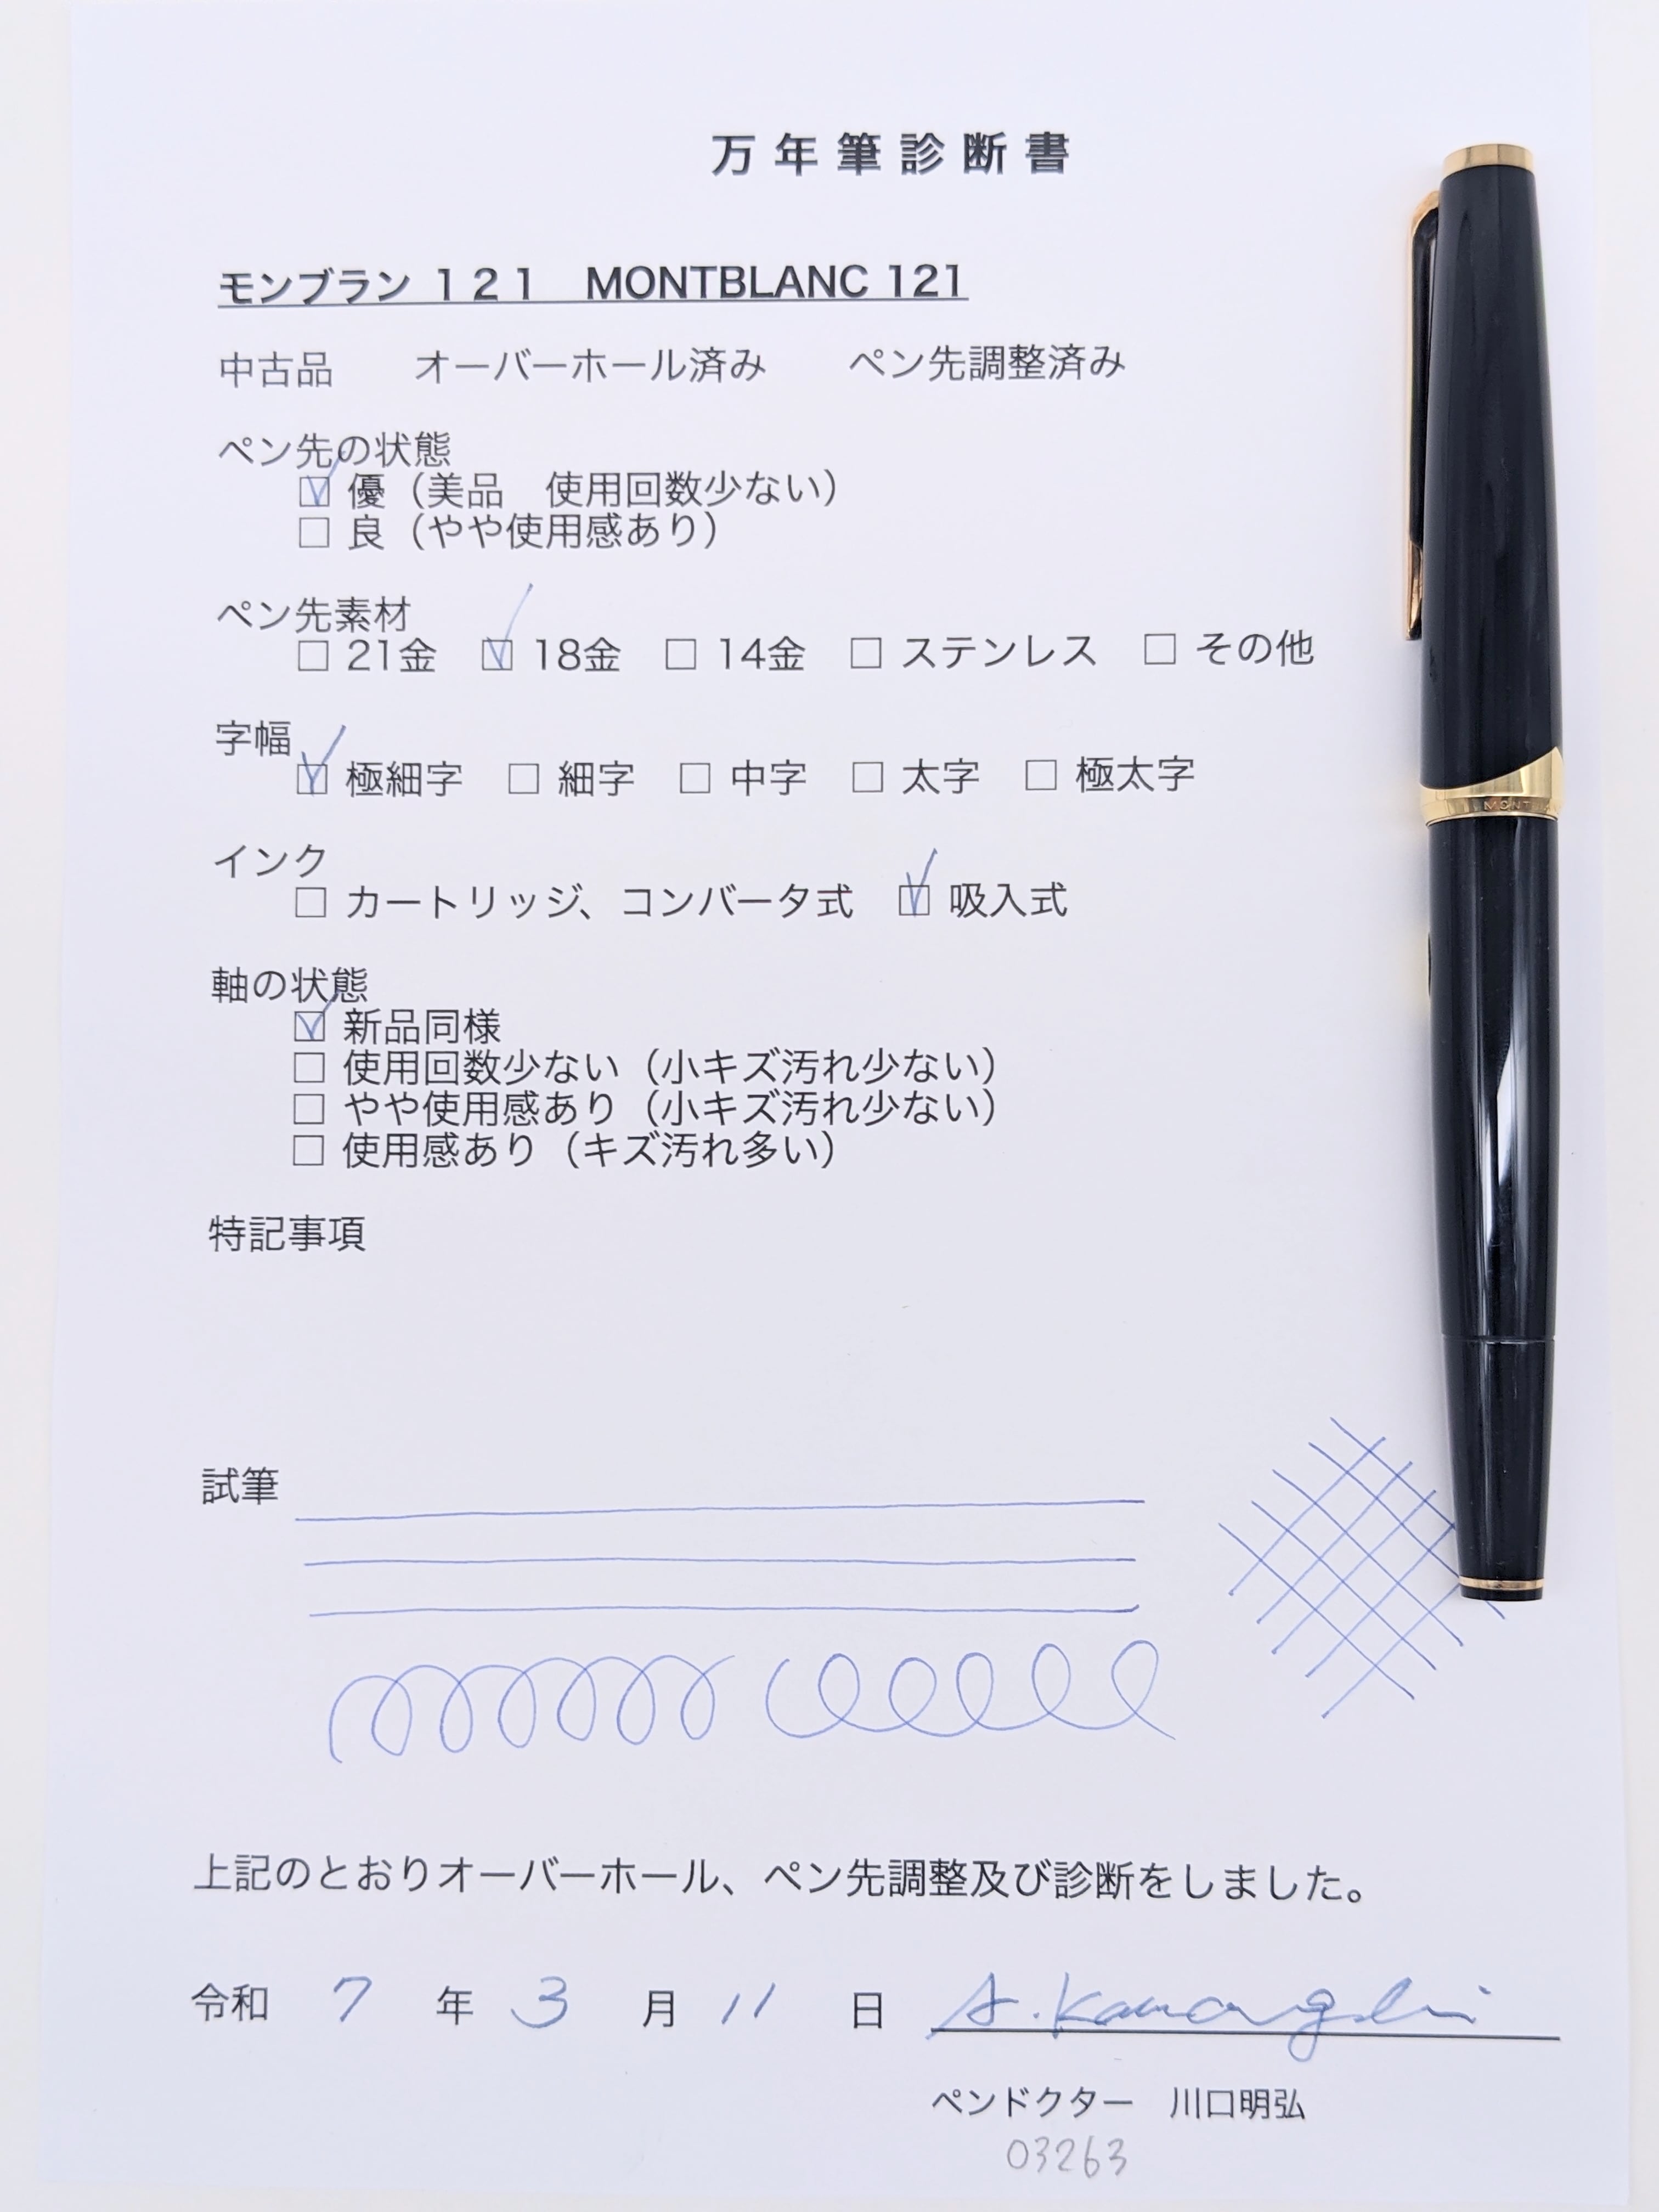 万年筆診断書
モンブラン １２１　MONTBLANC 121
中古品　　オーバーホール済み　　ペン先調整済み
ペン先の状態
☑ 優（美品　使用回数少ない）
□ 良（やや使用感あり）
ペン先素材
□ 21金　☑ 18金　□ 14金　□ ステンレス　□ その他
字幅
☑ 極細字　□ 細字　□ 中字　□ 太字　□ 極太字
インク
□ カートリッジ、コンバータ式　☑ 吸入式
軸の状態
☑ 新品同様
□ 使用回数少ない（小キズ汚れ少ない）
□ やや使用感あり（小キズ汚れ少ない）
□ 使用感あり（キズ汚れ多い）
特記事項
試筆
上記のとおりオーバーホール、ペン先調整及び診断をしました。
令和 7 年 3 月 11 日 A. Kawaguchi
ペンドクター　川口明弘
03263